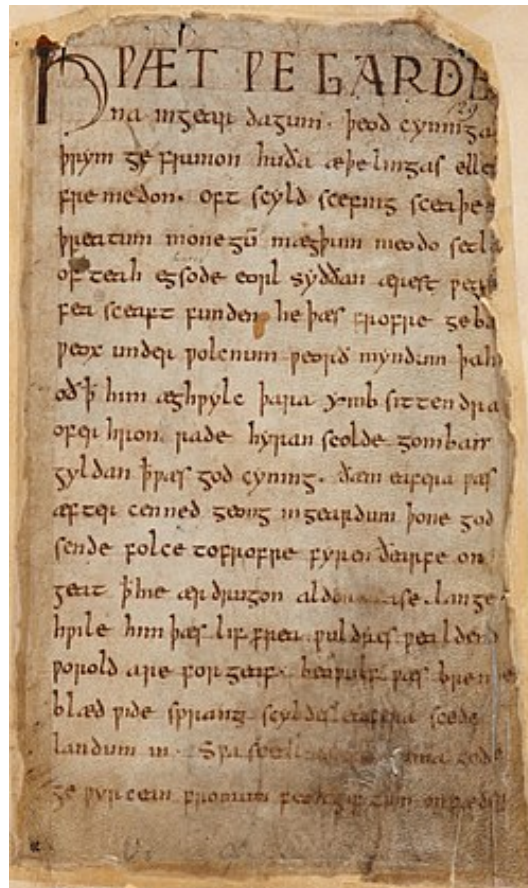 HǷÆT ǷE GARDE
na ingear dagum. þeod cyninga
þrym ge frunon huða æþelingas elle
fremedon. oft scyld scefing sceaþe
þreatum monegū mægþum meodo setla
of teah egsode eorl syððan ærest ƿearð
fea sceaft funden he þæs frofre geba
ƿeox under ƿolcnum ƿeorð myndum þah
oð þ him æghƿylc þara ymb sittendra
ofer hron rade hyran scolde gomban
gyldan þ ƿæs god cyning. ðæm eafera ƿæs
æfter cenned geong in geardum þone god
sende folce tofrofre fyren ðearfe on
geat þ hie ær drugon aldor ase. lange
hƿile him þæs lif frea ƿuldres ƿealdend
ƿorold are for geaf. beoƿulf ƿæs breme
blæd ƿide sprang scyldes eafera scede
landum in. Sƿa gode
ge ƿyrcean fromum feoh giftum